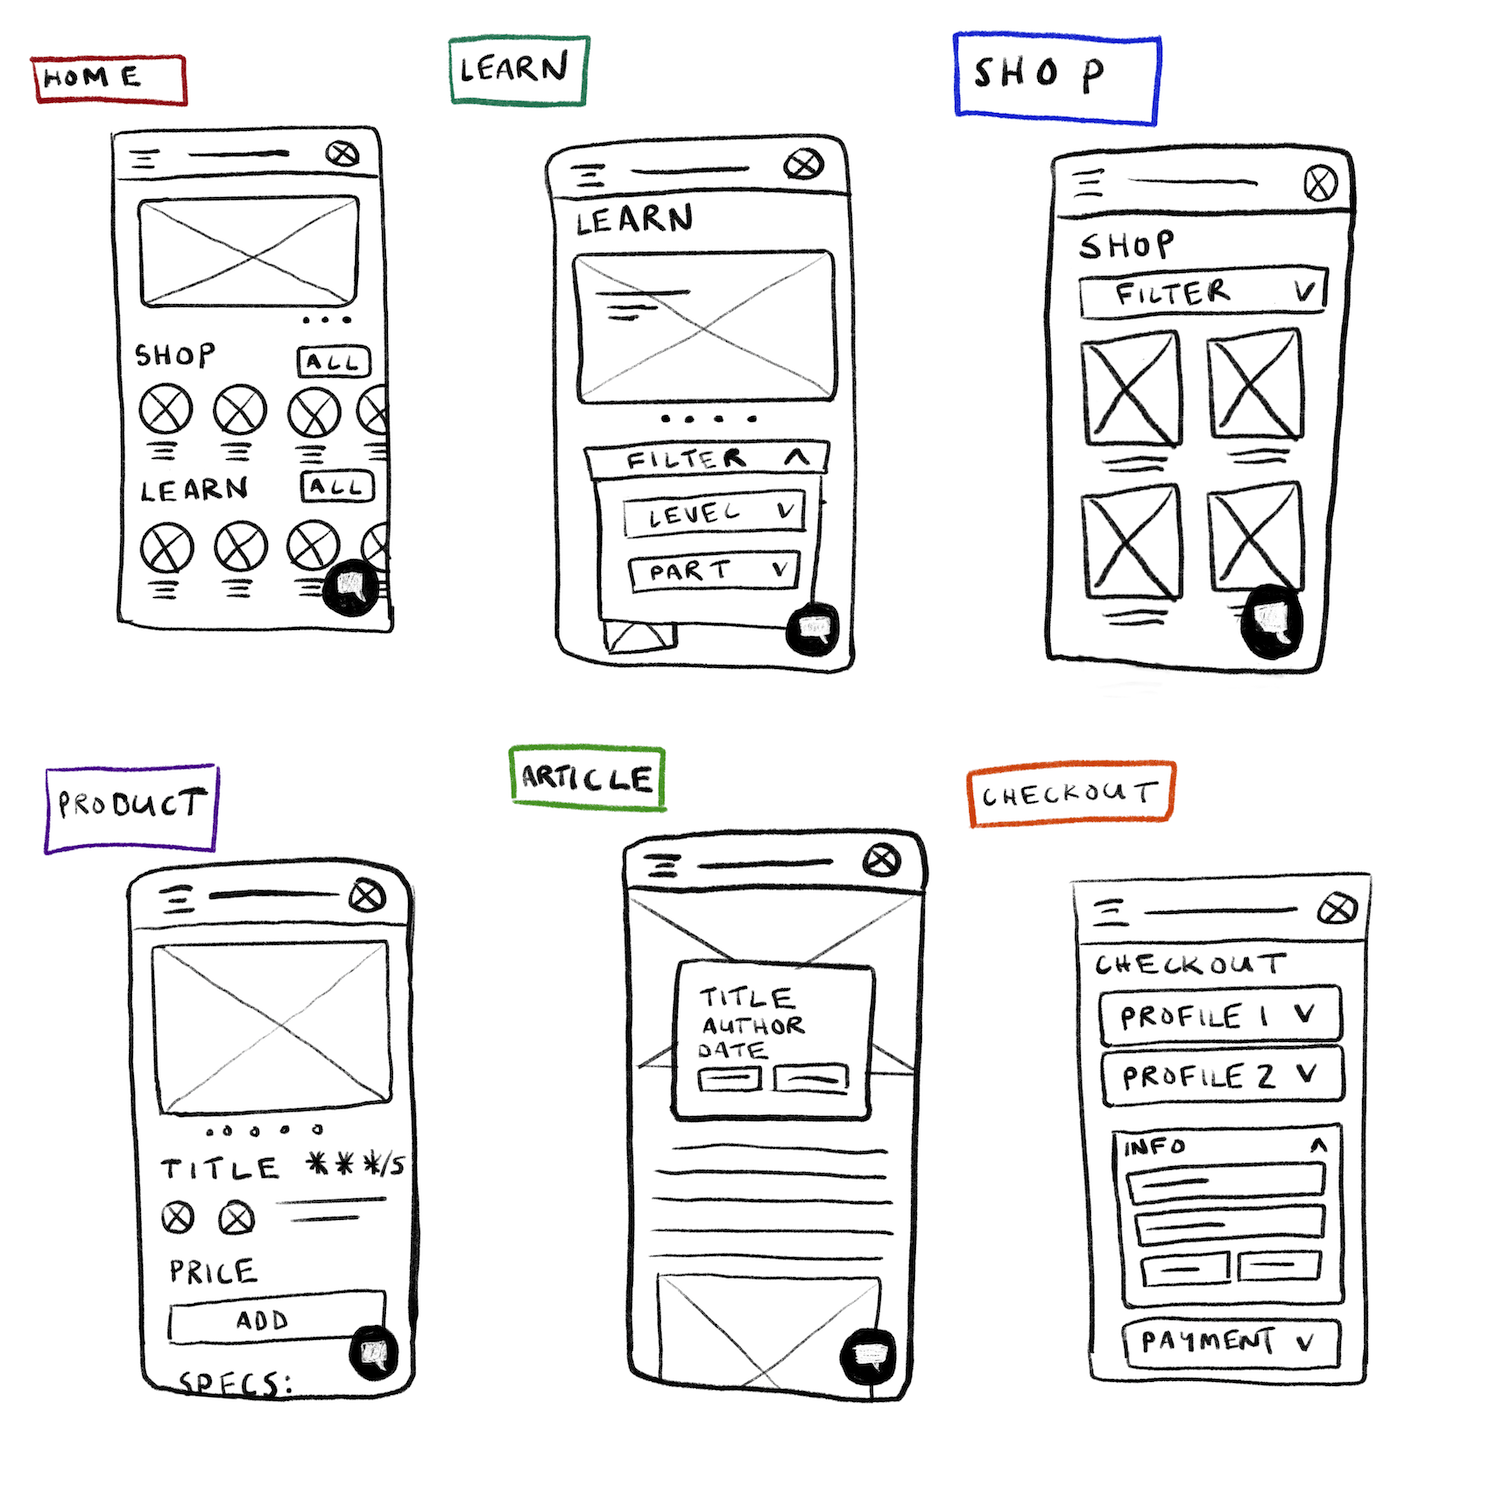 HOME
SHOP
ALL
LEARN
ALL
LEARN
LEARN
FILTER
LEVEL
PART
SHOP
SHOP
FILTER
PRODUCT
TITLE ***/5
PRICE
ADD
SPECS:
ARTICLE
TITLE
AUTHOR
DATE
CHECKOUT
CHECKOUT
PROFILE 1
PROFILE 2
INFO
PAYMENT